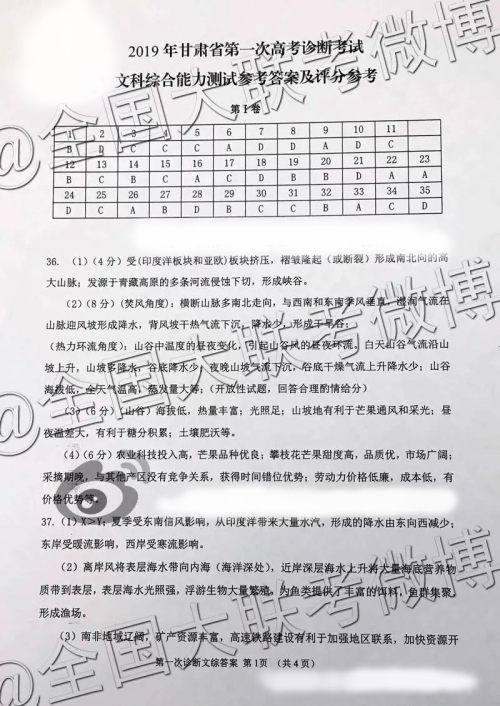 2019 年甘肃省第一次高考诊断考试
文科综合能力测试参考答案及评分参考
第 I 卷
1 2 3 4 5 6 7 8 9 10 11
B D C C C A D D A D C
12 13 14 15 16 17 18 19 20 21 22 23
B C B C A C D B B D A A
24 25 26 27 28 29 30 31 32 33 34 35
D C A B D B C C B A C D
36. （1）（4 分）受(印度洋板块和亚欧)板块挤压，褶皱隆起（或断裂）形成南北向的高
大山脉；发源于青藏高原的多条河流侵蚀下切，形成峡谷。
（2）（8 分）(焚风角度)：横断山脉多南北走向，与西南和东南季风垂直，湿润气流在
山脉迎风坡形成降水，背风坡干热气流下沉，降水少，形成干旱谷；
（热力环流角度）：山谷中温度的昼夜变化，引起山谷风的昼夜环流。白天山谷气流沿山
坡上升，山坡多降水，谷底降水少；夜晚山坡气流下沉，谷底干燥气流上升降水少；山谷
海拔低，全天气温高，蒸发量大等；（开放性试题，回答合理酌情给分）
（3）（6 分）（山谷）海拔低，热量丰富；光照足；山坡地有利于芒果通风和采光；昼
夜温差大，有利于糖分积累；土壤肥沃等。
（4）（6 分）农业科技投入高，芒果品种优良；攀枝花芒果甜度高，品质优，市场广阔；
采摘期晚，与其他产区没有竞争关系，获得时间错位优势；劳动力价格低廉，成本低，有
价格优势等。
37. （1）X＞Y；夏季受东南信风影响，从印度洋带来大量水汽，形成的降水由东向西减少；
东岸受暖流影响，西岸受寒流影响。
（2）离岸风将表层海水带向内海（海洋深处），近岸深层海水上升将大量海底营养物
质带到表层，表层海水光照强，浮游生物大量繁殖，为鱼类提供了丰富的饵料，鱼群集聚，
形成渔场。
（3）南非地域辽阔，矿产资源丰富，高速铁路建设有利于加强地区联系，加快资源开
第一次诊断文综答案 第 1页 （共 4 页）
@全国大联考微博
@全国大联考微博
@全国大联考微博